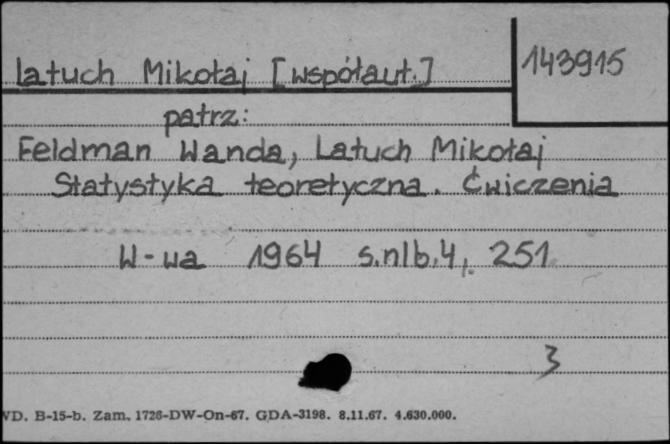 Latuch Mikołaj [współaut.]
143915
patrz:
Feldman Wanda, Latuch Mikołaj
Statystyka teoretyczna. Ćwiczenia
W-wa 1964 s.nlb.4, 251
3
WD. B-15-b. Zam. 1726-DW-On-67. GDA-3198. 8.11.67. 4.630.000.